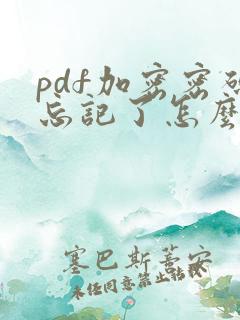 pdf加密密码
忘記了怎麼
塞巴斯蒂安
未经同意禁止转载